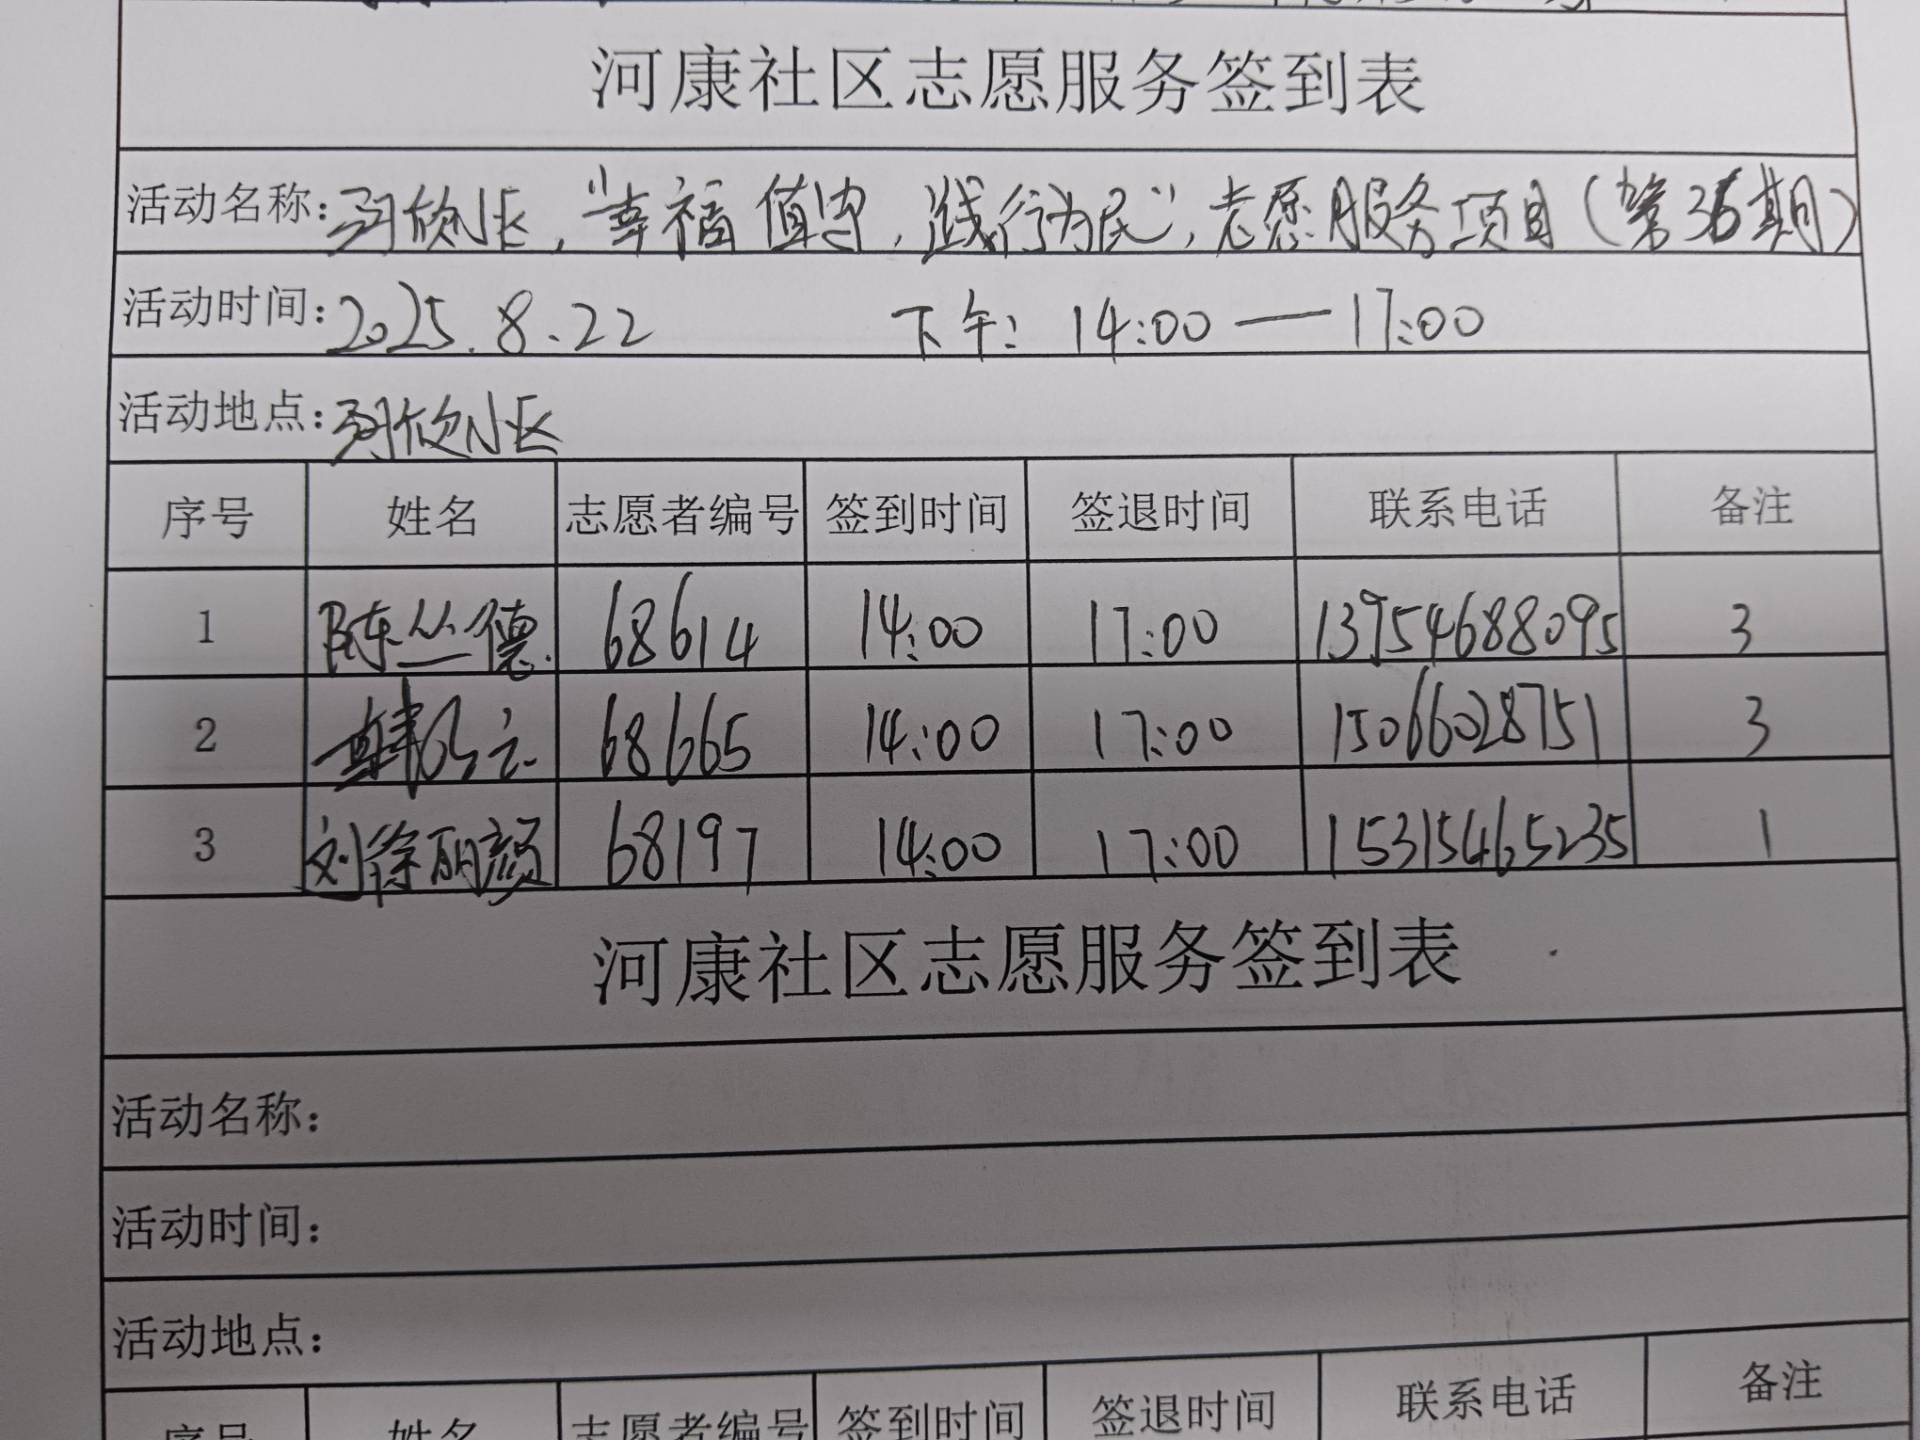 河康社区志愿服务签到表
活动名称: 河欣小区,"幸福值守,践行为民",志愿服务项目(第36期)
活动时间: 2025.8.22 下午: 14:00—17:00
活动地点: 河欣小区
序号 姓名 志愿者编号 签到时间 签退时间 联系电话 备注
1 陈丛德 68614 14:00 17:00 13954688095 3
2 68665 14:00 17:00 15066028751 3
3 刘徐丽颜 68197 14:00 17:00 15315465235 1
河康社区志愿服务签到表
活动名称:
活动时间:
活动地点:
序号 姓名 志愿者编号 签到时间 签退时间 联系电话 备注